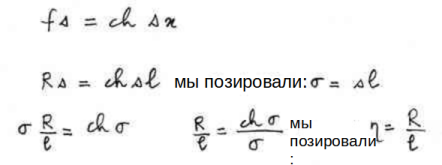 fs = ch sx
Rs = ch sl мы позировали: σ = sl
σ R/l = ch σ R/l = ch σ/σ мы позировали : η = R/l